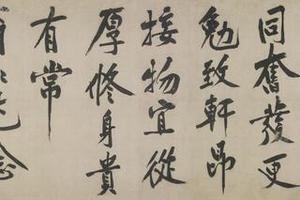 同奮發更
勉致軒昂
接物宜從
厚修身貴
有常